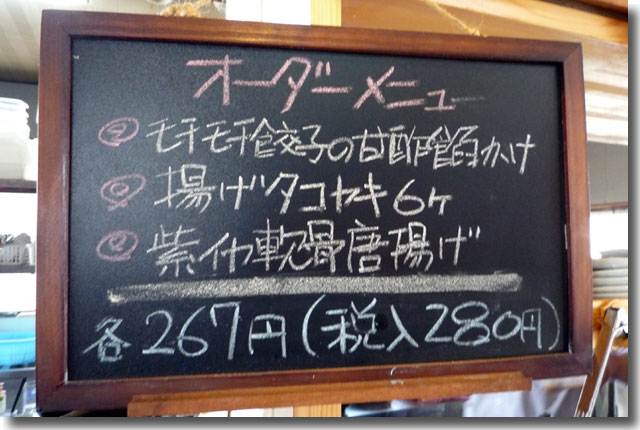 オーダーメニュー
モチモチ餃子の甘酢餡かけ
揚げタコヤキ6ヶ
紫イカ軟骨唐揚げ
各267円(税入280円)